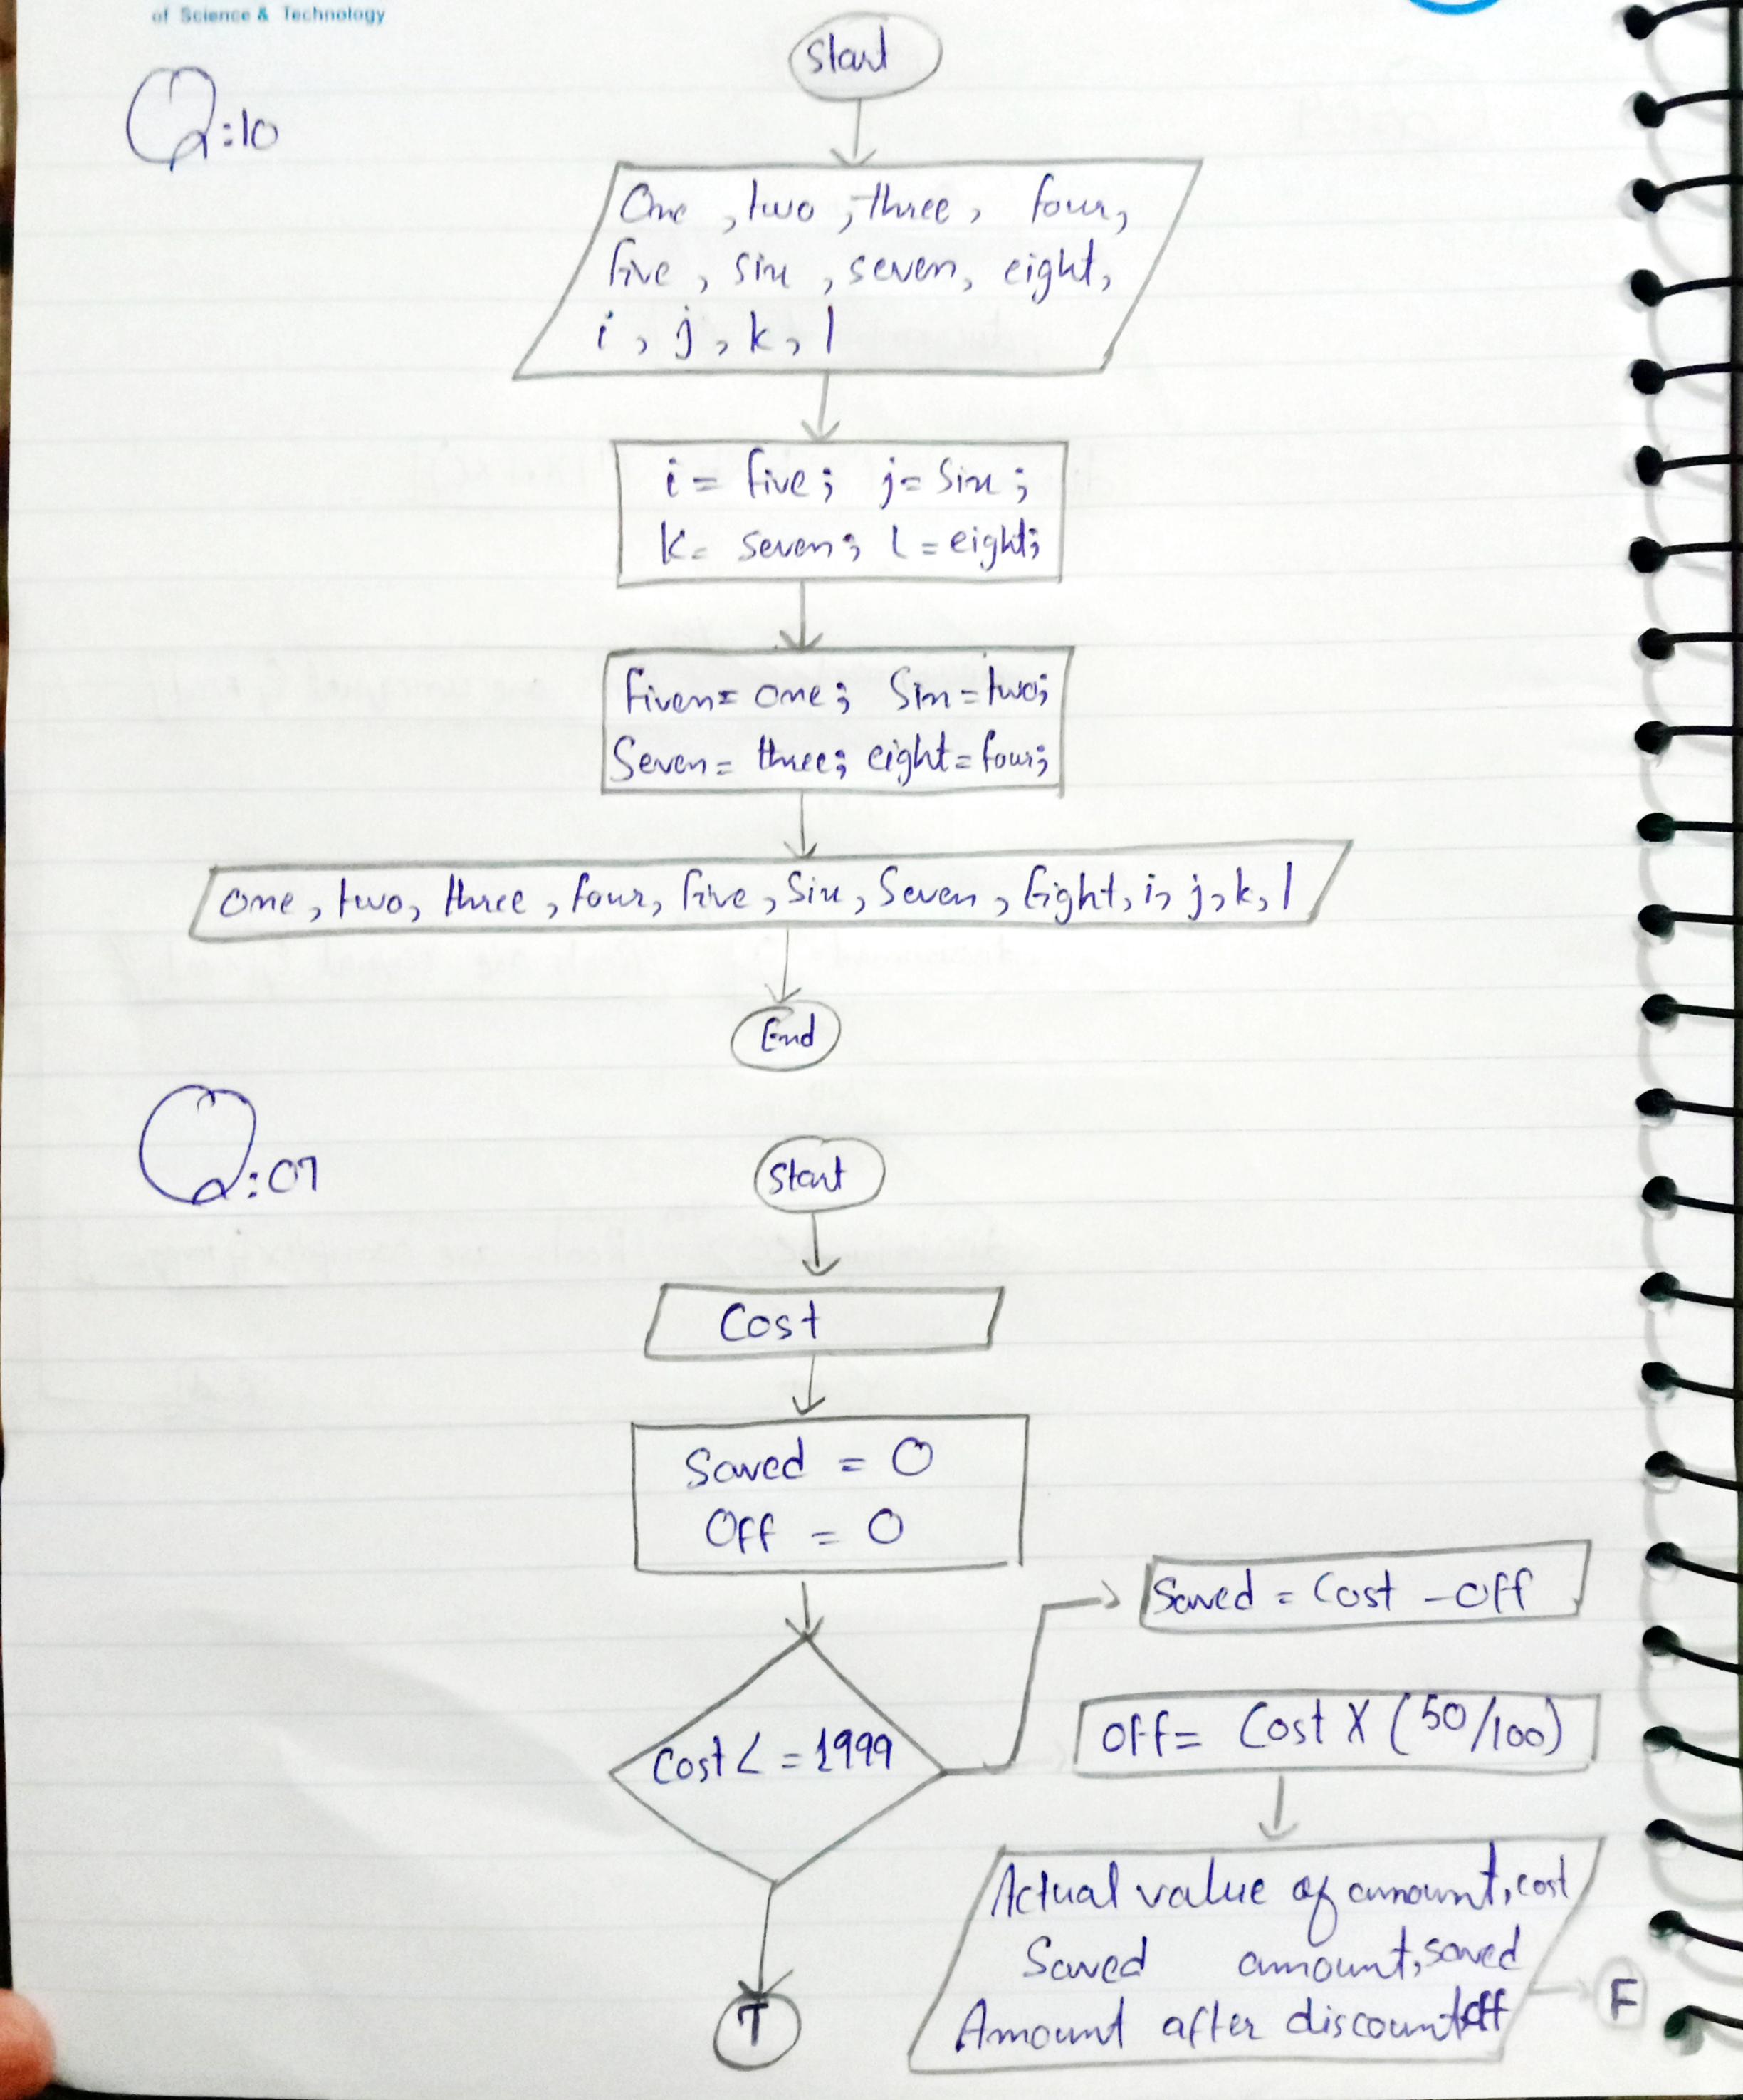 of Science & Technology
Q:10
Start
One , two , three , four,
five , six , seven, eight,
i , j , k , l
i = five ; j = six ;
k = seven ; l = eight;
Fiven= one ; Six = two;
Seven = three; eight = four;
one , two, three , four, five , Six , Seven , Eight, i, j, k, l
End
Q:07
Start
Cost
Saved = 0
Off = 0
Saved = Cost - Off
Cost < = 1999
Off = Cost X (50/100)
Actual value of amount, cost
Saved amount, saved
Amount after discount off
F
T